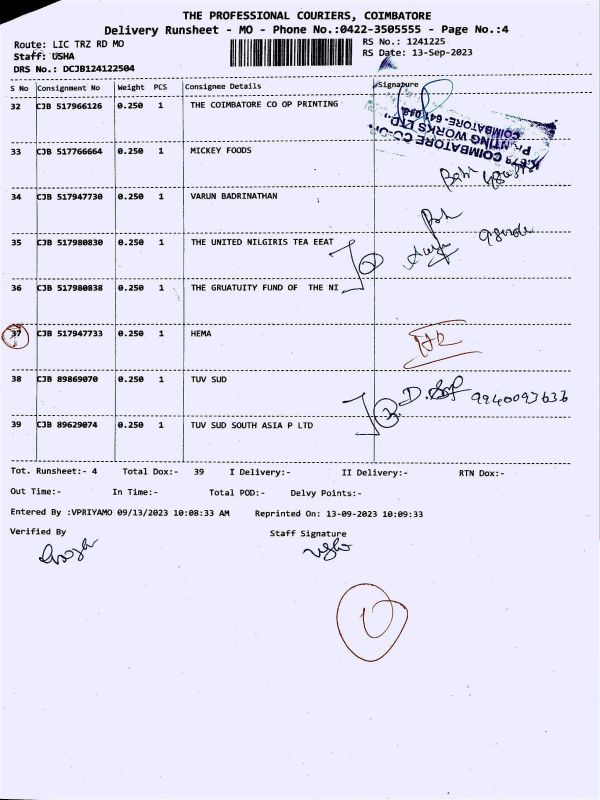 THE PROFESSIONAL COURIERS, COIMBATORE
Delivery Runsheet - MO - Phone No.:0422-3505555 - Page No.:4
Route: LIC TRZ RD MO
RS No.: 1241225
Staff: USHA
RS Date: 13-Sep-2023
DRS No.: DCJB124122504
S No Consignment No Weight PCS Consignee Details Signature
32 CJB 517966126 0.250 1 THE COIMBATORE CO OP PRINTING
COIMBATORE CO-OP.
PRINTING WORKS LTD.,
COIMBATORE-641 018.
33 CJB 517766664 0.250 1 MICKEY FOODS
34 CJB 517947730 0.250 1 VARUN BADRINATHAN
35 CJB 517980830 0.250 1 THE UNITED NILGIRIS TEA EEAT
36 CJB 517980838 0.250 1 THE GRUATUITY FUND OF THE NI
37 CJB 517947733 0.250 1 HEMA
38 CJB 89869070 0.250 1 TUV SUD
9940097636
39 CJB 89629074 0.250 1 TUV SUD SOUTH ASIA P LTD
Tot. Runsheet:- 4 Total Dox:- 39 I Delivery:- II Delivery:- RTN Dox:-
Out Time:- In Time:- Total POD:- Delvy Points:-
Entered By :VPRIYAMO 09/13/2023 10:08:33 AM Reprinted On: 13-09-2023 10:09:33
Verified By Staff Signature